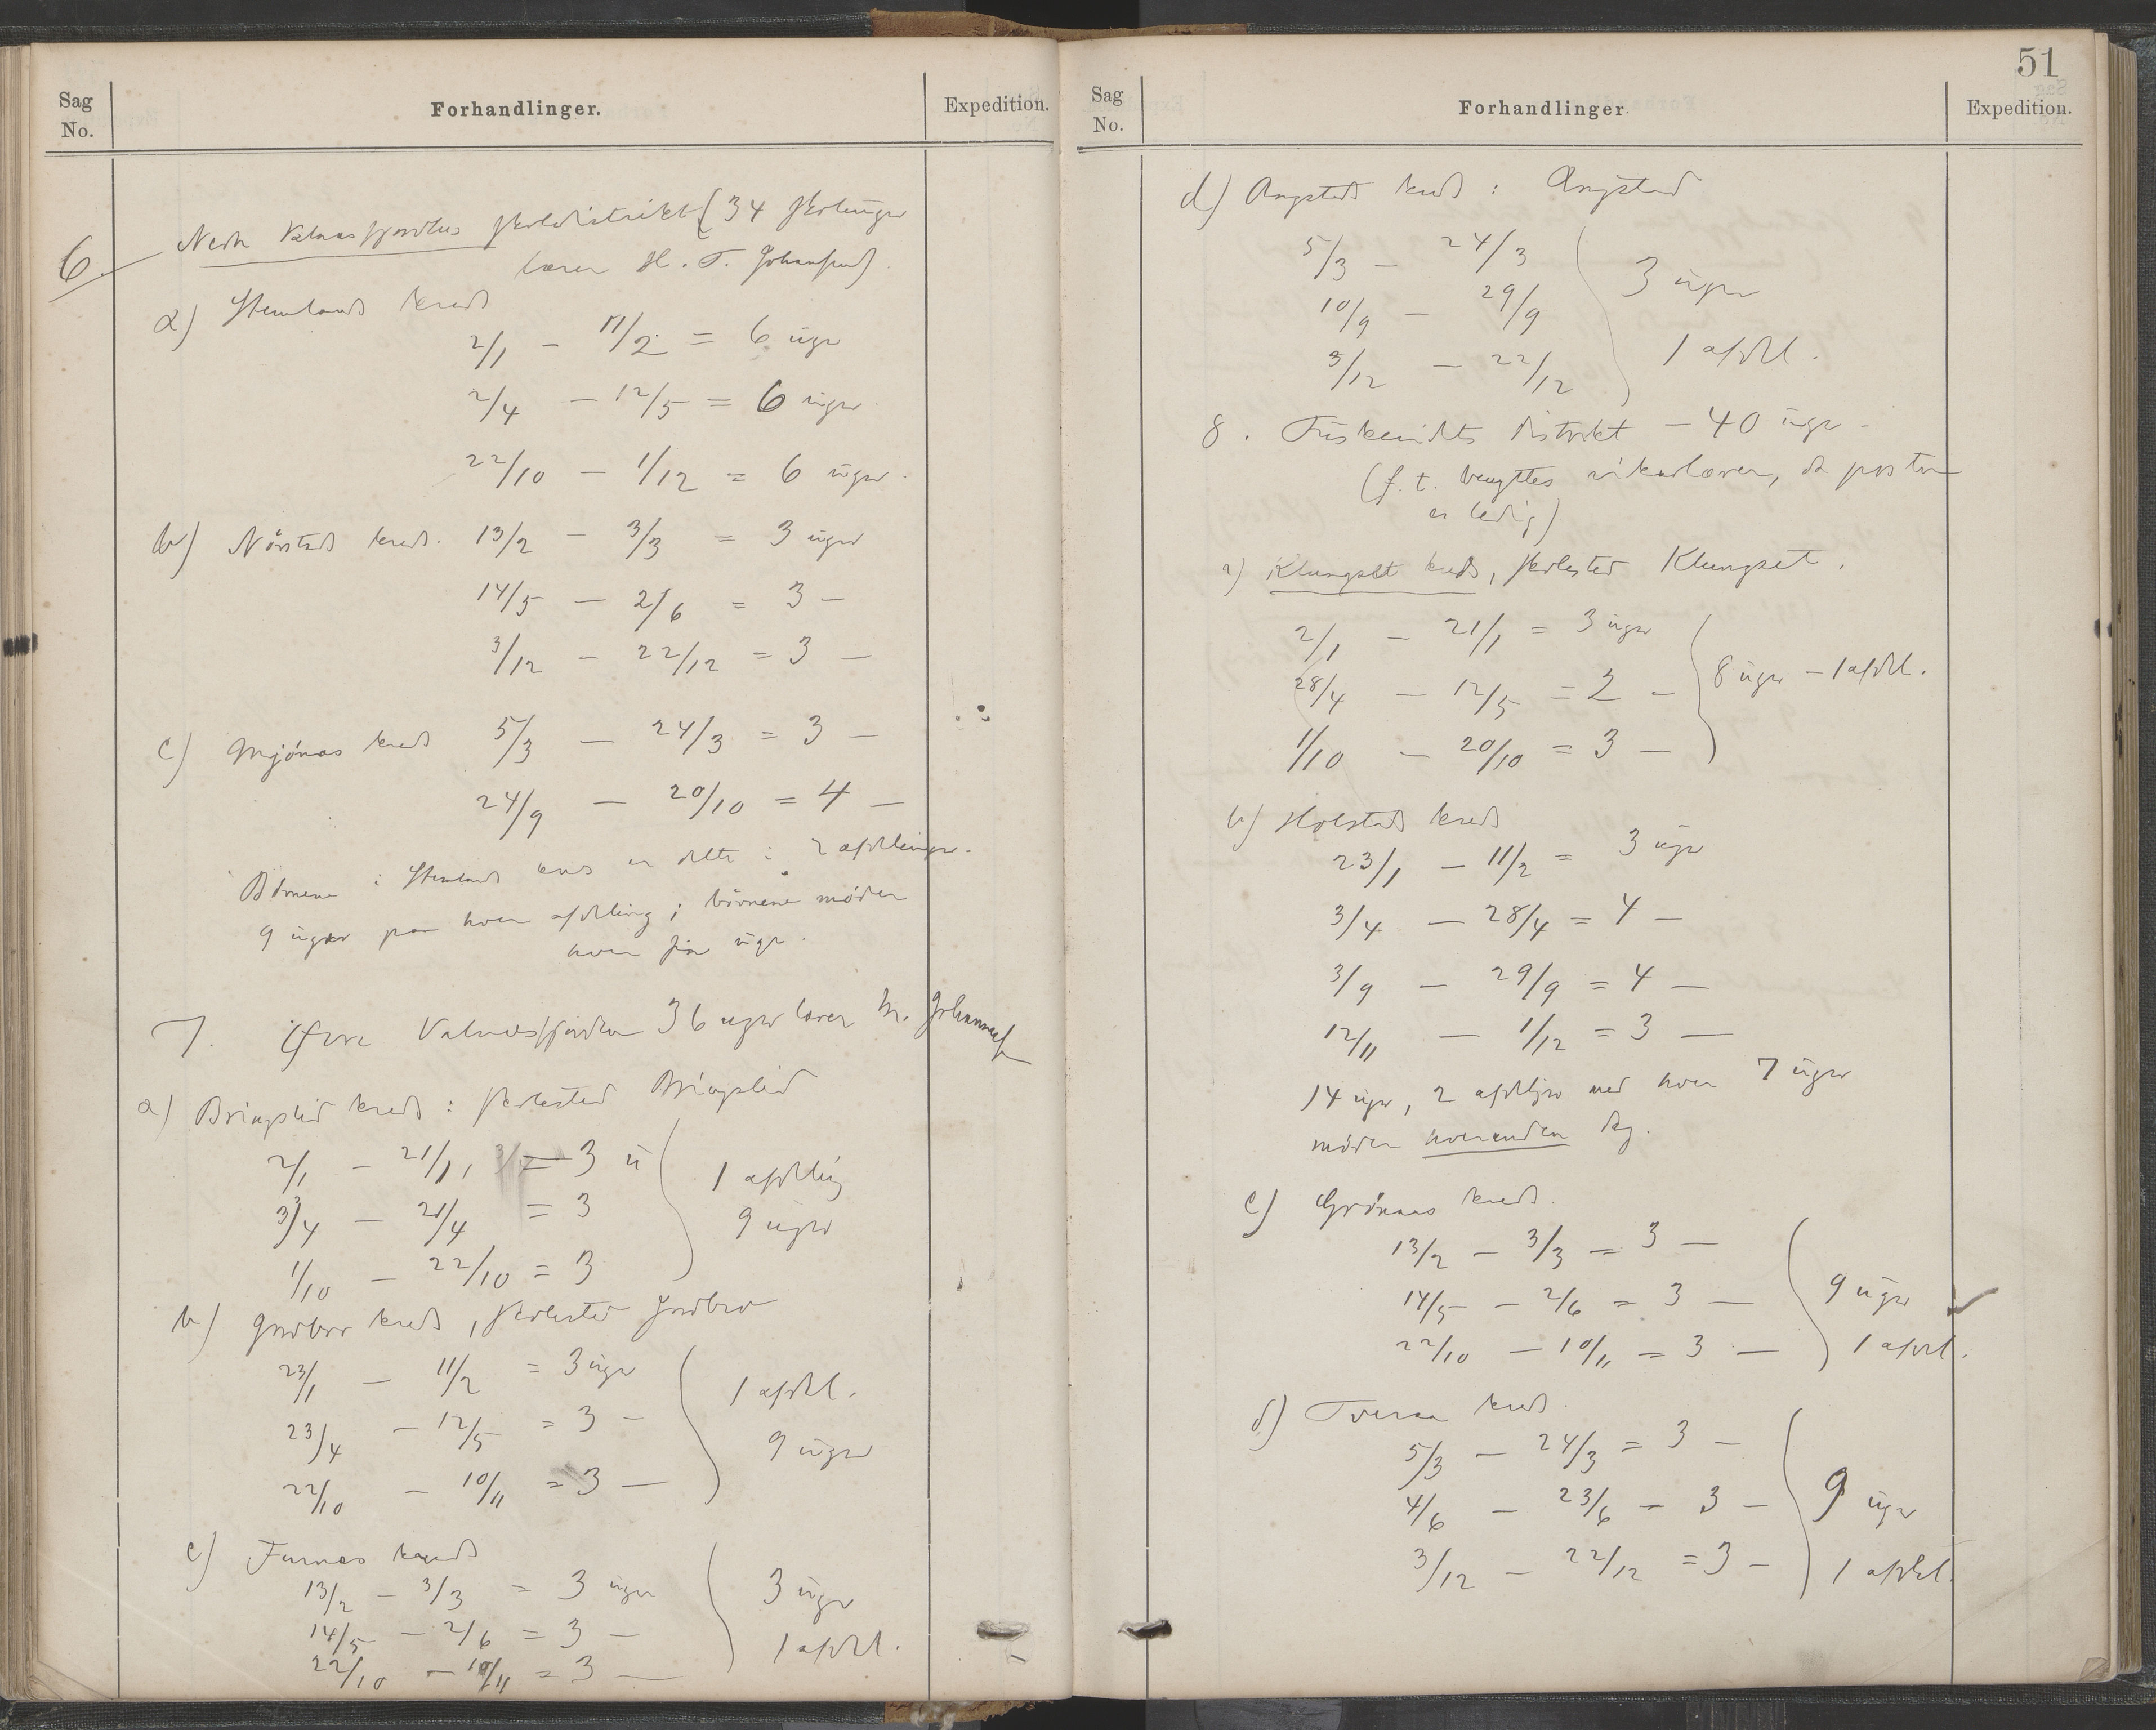 Sag
No.
Forhandlinger.
Expedition.
6
Nedre Valnesfjordens skoledistrikt (34 skoleuger
lærer H. T. Johansen).
a) Stemlands kreds
2/1 - 11/2 = 6 uger
2/4 - 12/5 = 6 uger
22/10 - 1/12 = 6 uger.
b) Nørstads kreds. 13/2 - 3/3 = 3 uger
14/5 - 2/6 = 3 -
3/12 - 22/12 = 3 -
c) Mjønes kreds 5/3 - 24/3 = 3 -
24/9 - 20/10 = 4 -
Børnene i Stemlands kreds er delte i 2 afdelinger.
9 uger paa hver afdeling; børnene møder
hver sin uge.
7. Øvre Valnesfjorden 36 uger lærer Kr. Johannesen
a) Bringslid kreds: skolested Bringslid
2/1 - 21/1, = 3 u
3/4 - 21/4 = 3
1/10 - 22/10 = 3
1 afdeling
9 uger
b) Jordbro kreds, skolested Jordbro
23/1 - 11/2 = 3 uger
23/4 - 12/5 = 3 -
22/10 - 10/11 = 3 -
1 afdel.
9 uger
c) Furnes kreds
13/2 - 3/3 = 3 uger
14/5 - 2/6 = 3 -
22/10 - 10/11 = 3 -
3 uger
1 afdel.
51
Sag
No.
Forhandlinger.
Expedition.
d) Angstads kreds: Angstad
5/3 - 24/3
10/9 - 29/9
3/12 - 22/12
3 uger
1 afdel.
8. Fuskeidets distrikt - 40 uger -
(f. t. benyttes vikarlærer, da posten
er ledig)
a) Klungset kreds, skolested Klungset.
2/1 - 21/1 = 3 uger
28/4 - 12/5 = 2 -
1/10 - 20/10 = 3 -
8 uger - 1 afdel.
b) Holstads kreds
23/1 - 11/2 = 3 uger
3/4 - 28/4 = 4 -
3/9 - 29/9 = 4 -
12/11 - 1/12 = 3 -
14 uger, 2 afdlger med hver 7 uger
møder hveranden dag.
c) Grønnes kreds.
13/2 - 3/3 = 3 -
14/5 - 2/6 = 3 -
22/10 - 10/11 = 3 -
9 uger
1 afdel.
d) Tveraa kreds.
5/3 - 24/3 = 3 -
4/6 - 23/6 = 3 -
3/12 - 22/12 = 3 -
9 uger
1 afdel.